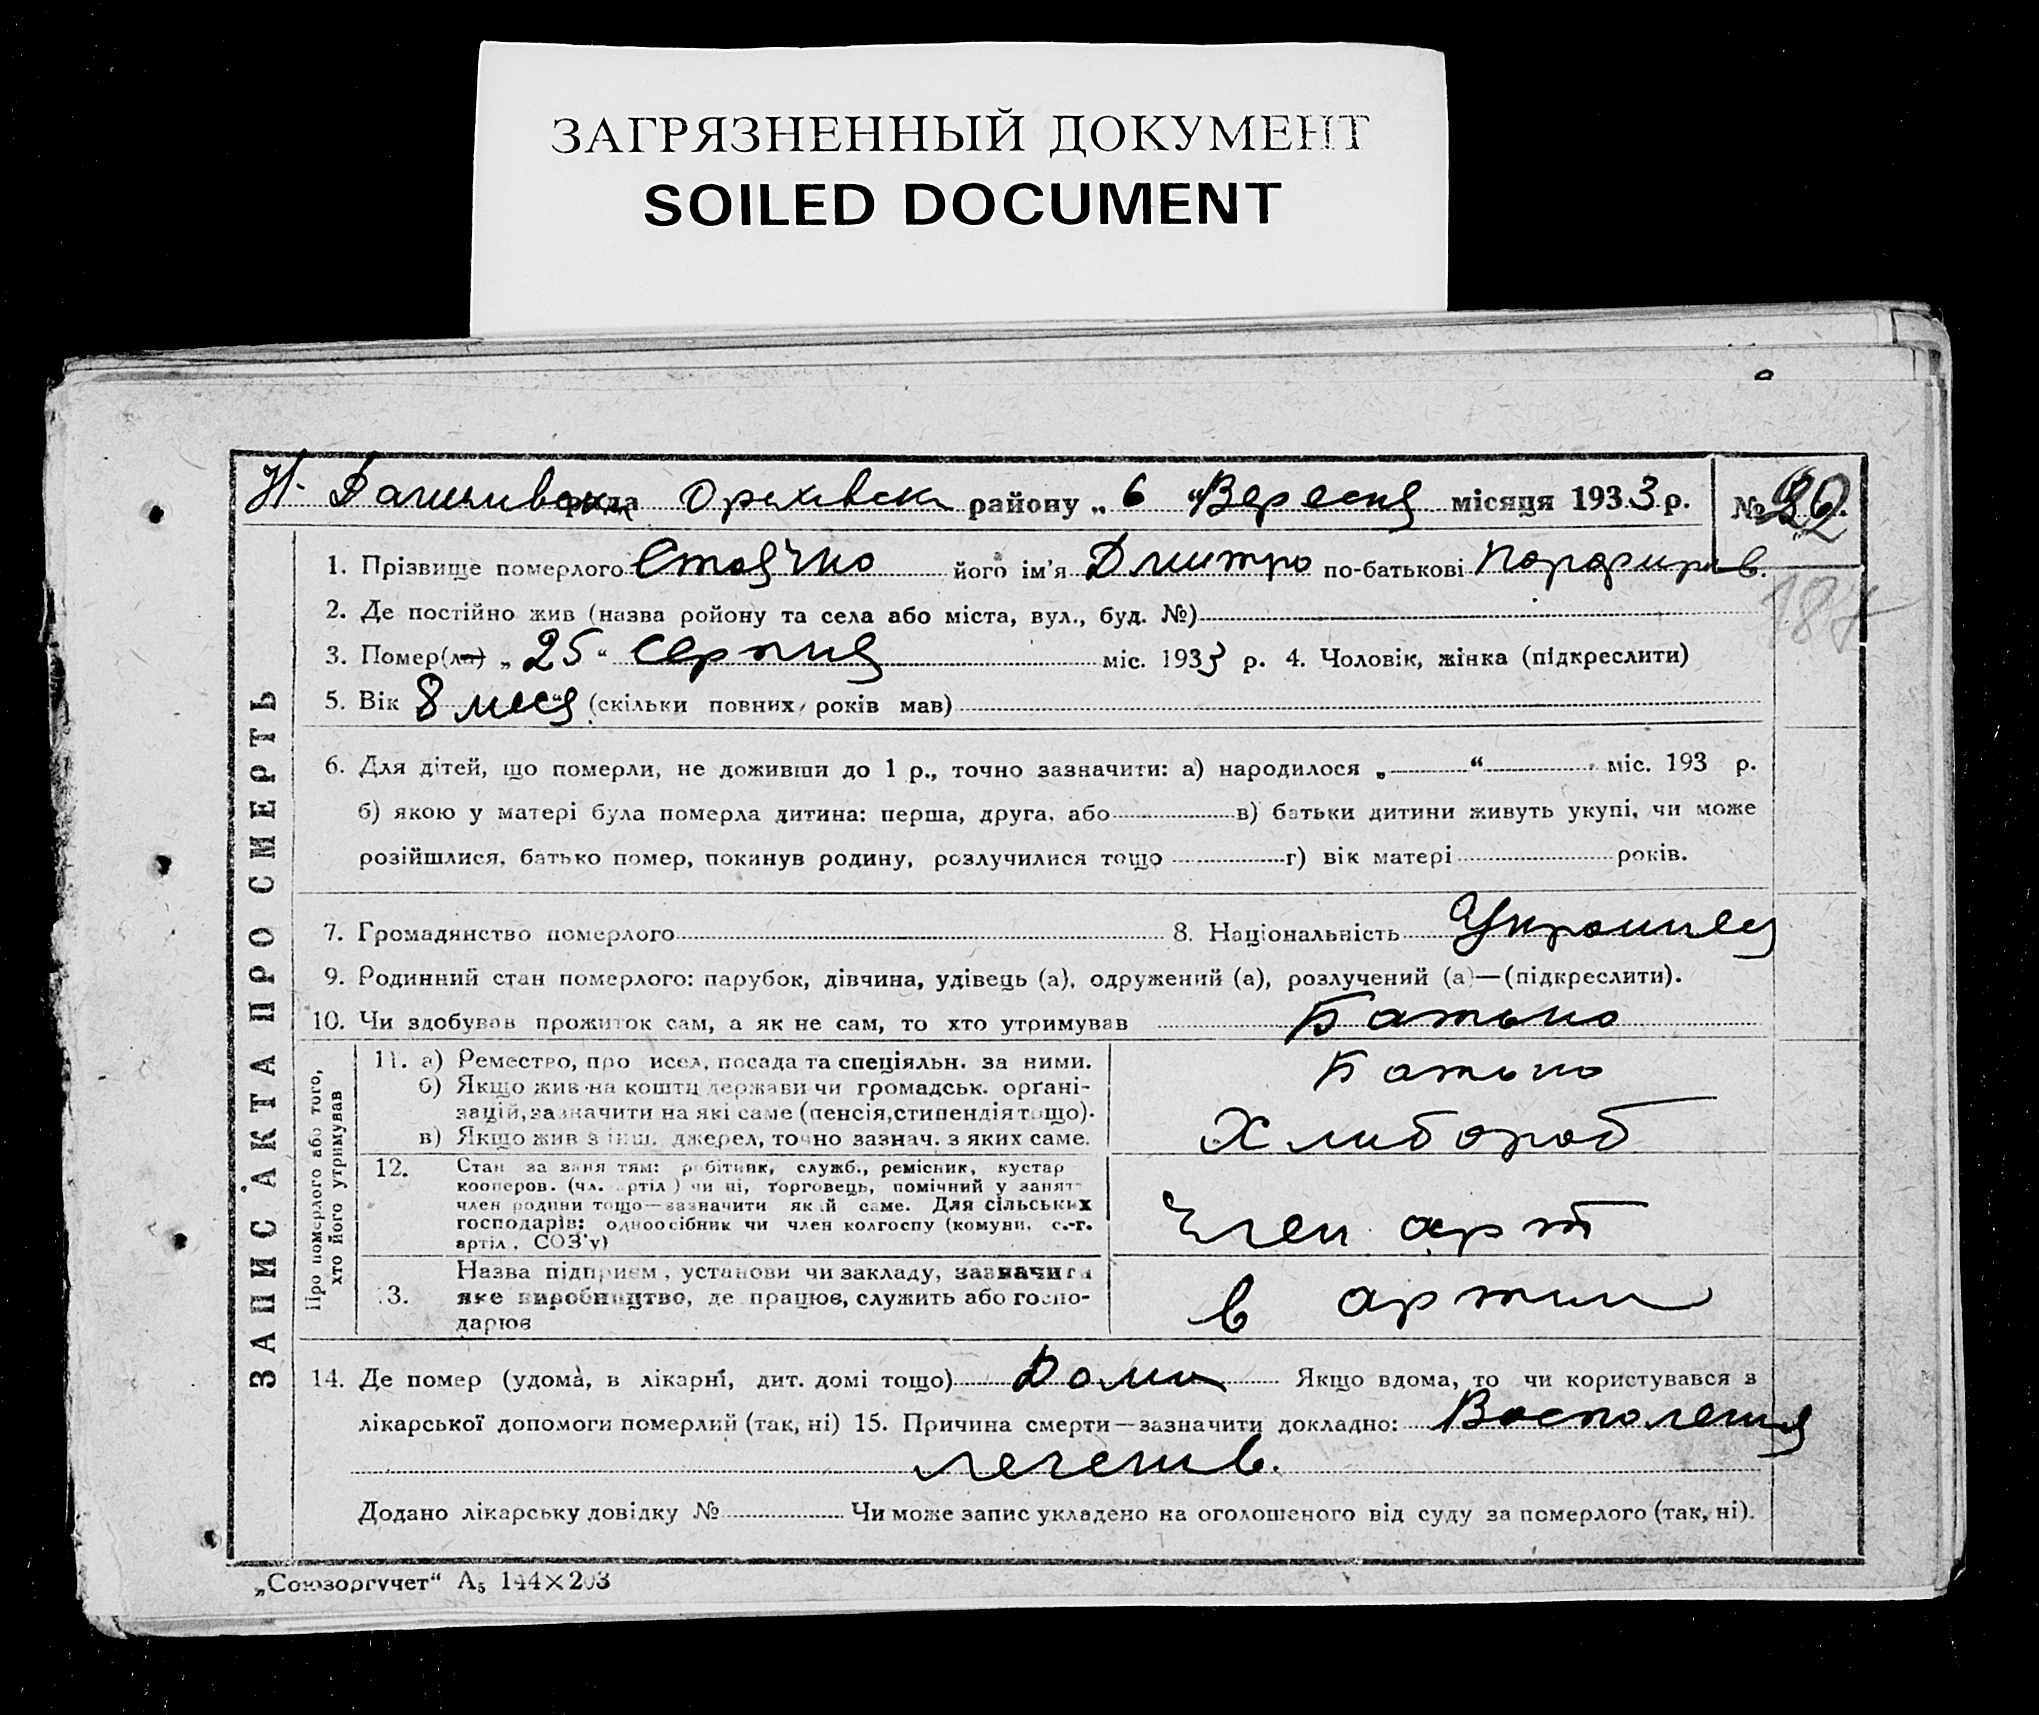 ЗАГРЯЗНЕННЫЙ ДОКУМЕНТ
SOILED DOCUMENT
Н. району „ 6 “ Вересня місяця 1933 р. №
ЗАПИС АКТА ПРО СМЕРТЬ
1. Прізвище померлого його ім'я Дмитро по-батькові Порфиров.
187
2. Де постійно жив (назва ройону та села або міста, вул., буд. №)
3. Помер(ла) „ 25 “ серпня міс. 1933 р. 4. Чоловік, жінка (підкреслити)
5. Вік 8 меся (скільки повних років мав)
6. Для дітей, що померли, не доживши до 1 р., точно зазначити: а) народилося „ “ міс. 193 р.
б) якою у матері була померла дитина: перша, друга, або в) батьки дитини живуть укупі, чи може
розійшлися, батько помер, покинув родину, розлучилися тощо г) вік матері років.
7. Громадянство померлого 8. Національність Українец
9. Родинний стан померлого: парубок, дівчина, удівець (а), одружений (а), розлучений (а)—(підкреслити).
10. Чи здобував прожиток сам, а як не сам, то хто утримував Батько
Про померлого або того, хто його утримував
11. а) Ремество, про исел, посада та спеціяльн. за ними. Батько
б) Якщо жив на кошти держави чи громадськ. орґані-
зацій, зазначити на які саме (пенсія, стипендія тощо). Хлибороб
в) Якщо жив з інш. джерел, точно зазнач. з яких саме.
12. Стан за заняттям: робітник, служб., ремісник, кустар
кооперов. (чл. артіл.) чи ні, торговець, помічний у занят-
член родини тощо—зазначити який саме. Для сільських Член арт
господарів: одноосібник чи член колгоспу (комуни, с.-г.
артіл., СОЗ'у)
Назва підприєм., установи чи закладу, зазначити
13. яке виробництво, де працює, служить або госпо- в артили
дарює
14. Де помер (удома, в лікарні, дит. домі тощо) Дома Якщо вдома, то чи користувався з
лікарської допомоги померлий (так, ні) 15. Причина смерти—зазначити докладно: Восполения
легенив.
Додано лікарську довідку № Чи може запис укладено на оголошеного від суду за померлого (так, ні).
„Союзоргучет“ А5 144×203